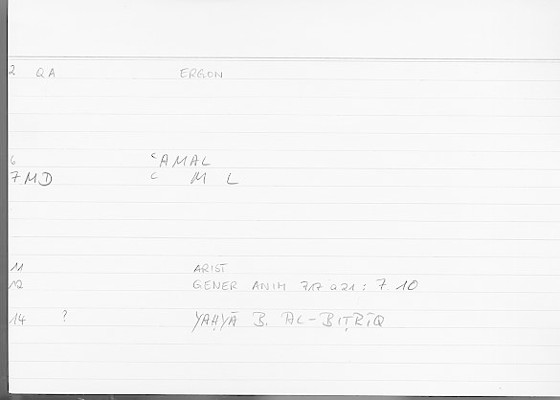 2 QA ERGON
6 ʿAMAL
7 MD ʿ M L
11 ARIST
12 GENER ANIM 717 a 21 : 7 10
14 ? YAḤYĀ B. AL-BIṬRĪQ